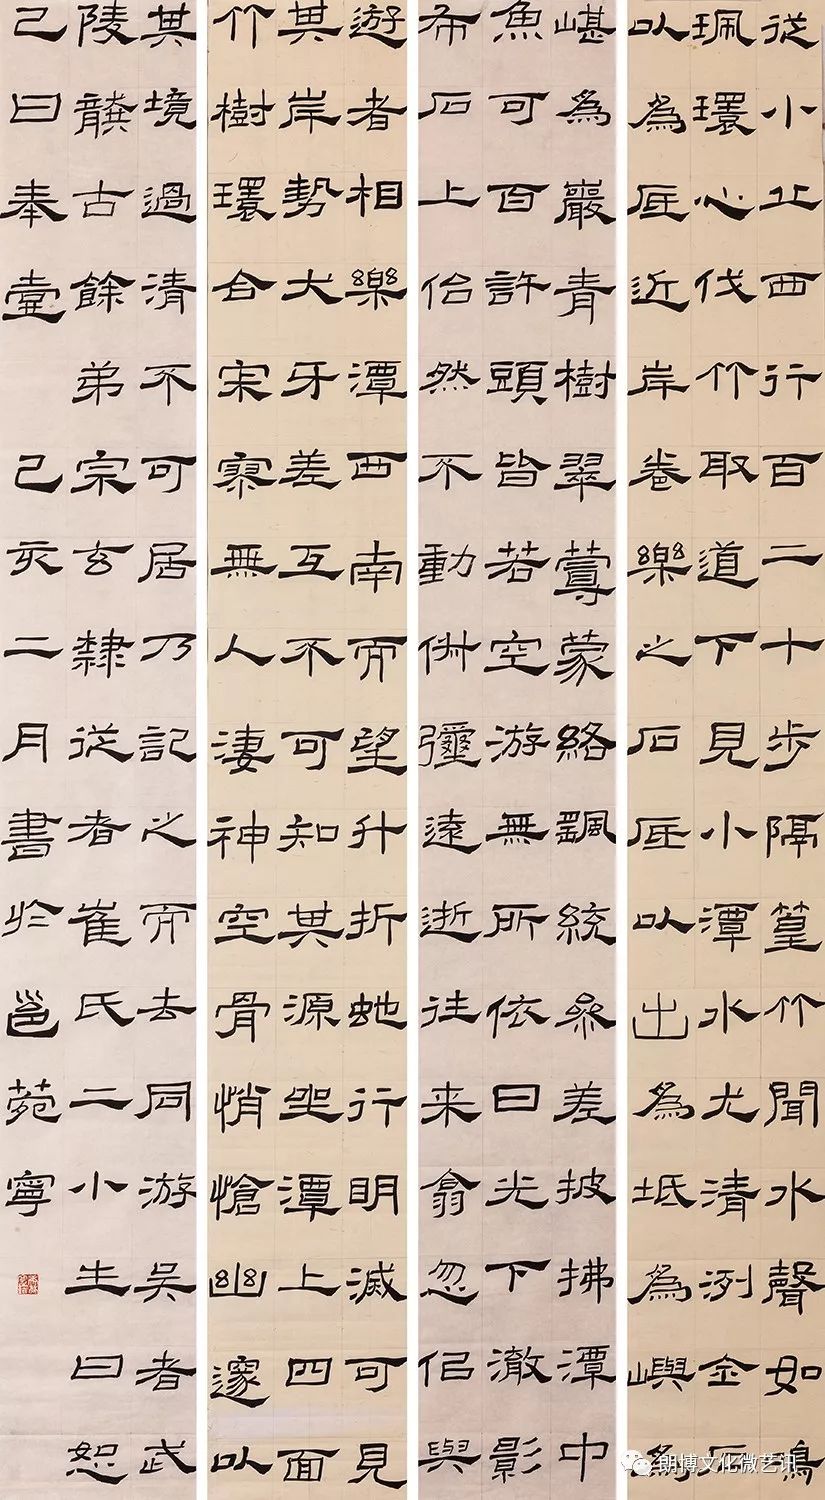 從小丘西行百二十步隔篁竹聞水聲如鳴
珮環心伐竹取道下見小潭水尤清冽金石
以為底近岸卷樂之石底以出為坻為嶼為
嵁為巖青樹翠蔓蒙絡颻統參差披拂潭中
魚可百許頭皆若空游無所依日光下澈影
布石上佁然不動俶彌遠逝往来翕忽佀與
遊者相樂潭西南而望斗折蛇行明滅可見
其岸勢犬牙差互不可知其源坐潭上四面
竹樹環合寂寥無人淒神空骨悄愴幽邃以
其境過清不可居乃記之而去同游吳者武
陵龔古餘弟宗玄隸從者崔氏二小生曰恕
己曰奉壹 己亥二月書於邕苑寧
朗博文化微艺讯